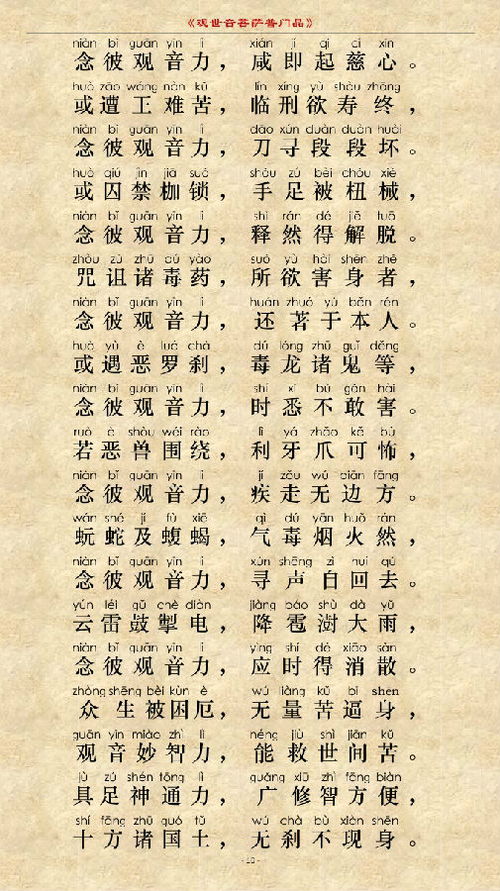 《观世音菩萨普门品》
niàn bǐ guān yīn lì xián jí qǐ cí xīn
念彼观音力，咸即起慈心。
huò zāo wáng nàn kǔ lín xíng yù shòu zhōng
或遭王难苦，临刑欲寿终，
niàn bǐ guān yīn lì dāo xún duàn duàn huài
念彼观音力，刀寻段段坏。
huò qiú jìn jiā suǒ shǒu zú bèi chǒu xiè
或囚禁枷锁，手足被杻械，
niàn bǐ guān yīn lì shì rán dé jiě tuō
念彼观音力，释然得解脱。
zhòu zǔ zhū dú yào suǒ yù hài shēn zhě
咒诅诸毒药，所欲害身者，
niàn bǐ guān yīn lì huán zhuó yú běn rén
念彼观音力，还著于本人。
huò yù è luó chà dú lóng zhū guǐ děng
或遇恶罗刹，毒龙诸鬼等，
niàn bǐ guān yīn lì shí xī bù gǎn hài
念彼观音力，时悉不敢害。
ruò è shòu wéi rào lì yá zhǎo kě bù
若恶兽围绕，利牙爪可怖，
niàn bǐ guān yīn lì jí zǒu wú biān fāng
念彼观音力，疾走无边方。
wán shé jí fù xiē qì dú yān huǒ rán
蚖蛇及蝮蝎，气毒烟火然，
niàn bǐ guān yīn lì xún shēng zì huí qù
念彼观音力，寻声自回去。
yún léi gǔ chè diàn jiàng báo shù dà yǔ
云雷鼓掣电，降雹澍大雨，
niàn bǐ guān yīn lì yìng shí dé xiāo sàn
念彼观音力，应时得消散。
zhòng shēng bèi kùn è wú liàng kǔ bī shēn
众生被困厄，无量苦逼身，
guān yīn miào zhì lì néng jiù shì jiān kǔ
观音妙智力，能救世间苦。
jù zú shén tōng lì guǎng xiū zhì fāng biàn
具足神通力，广修智方便，
shí fāng zhū guó tǔ wú chà bù xiàn shēn
十方诸国土，无刹不现身。